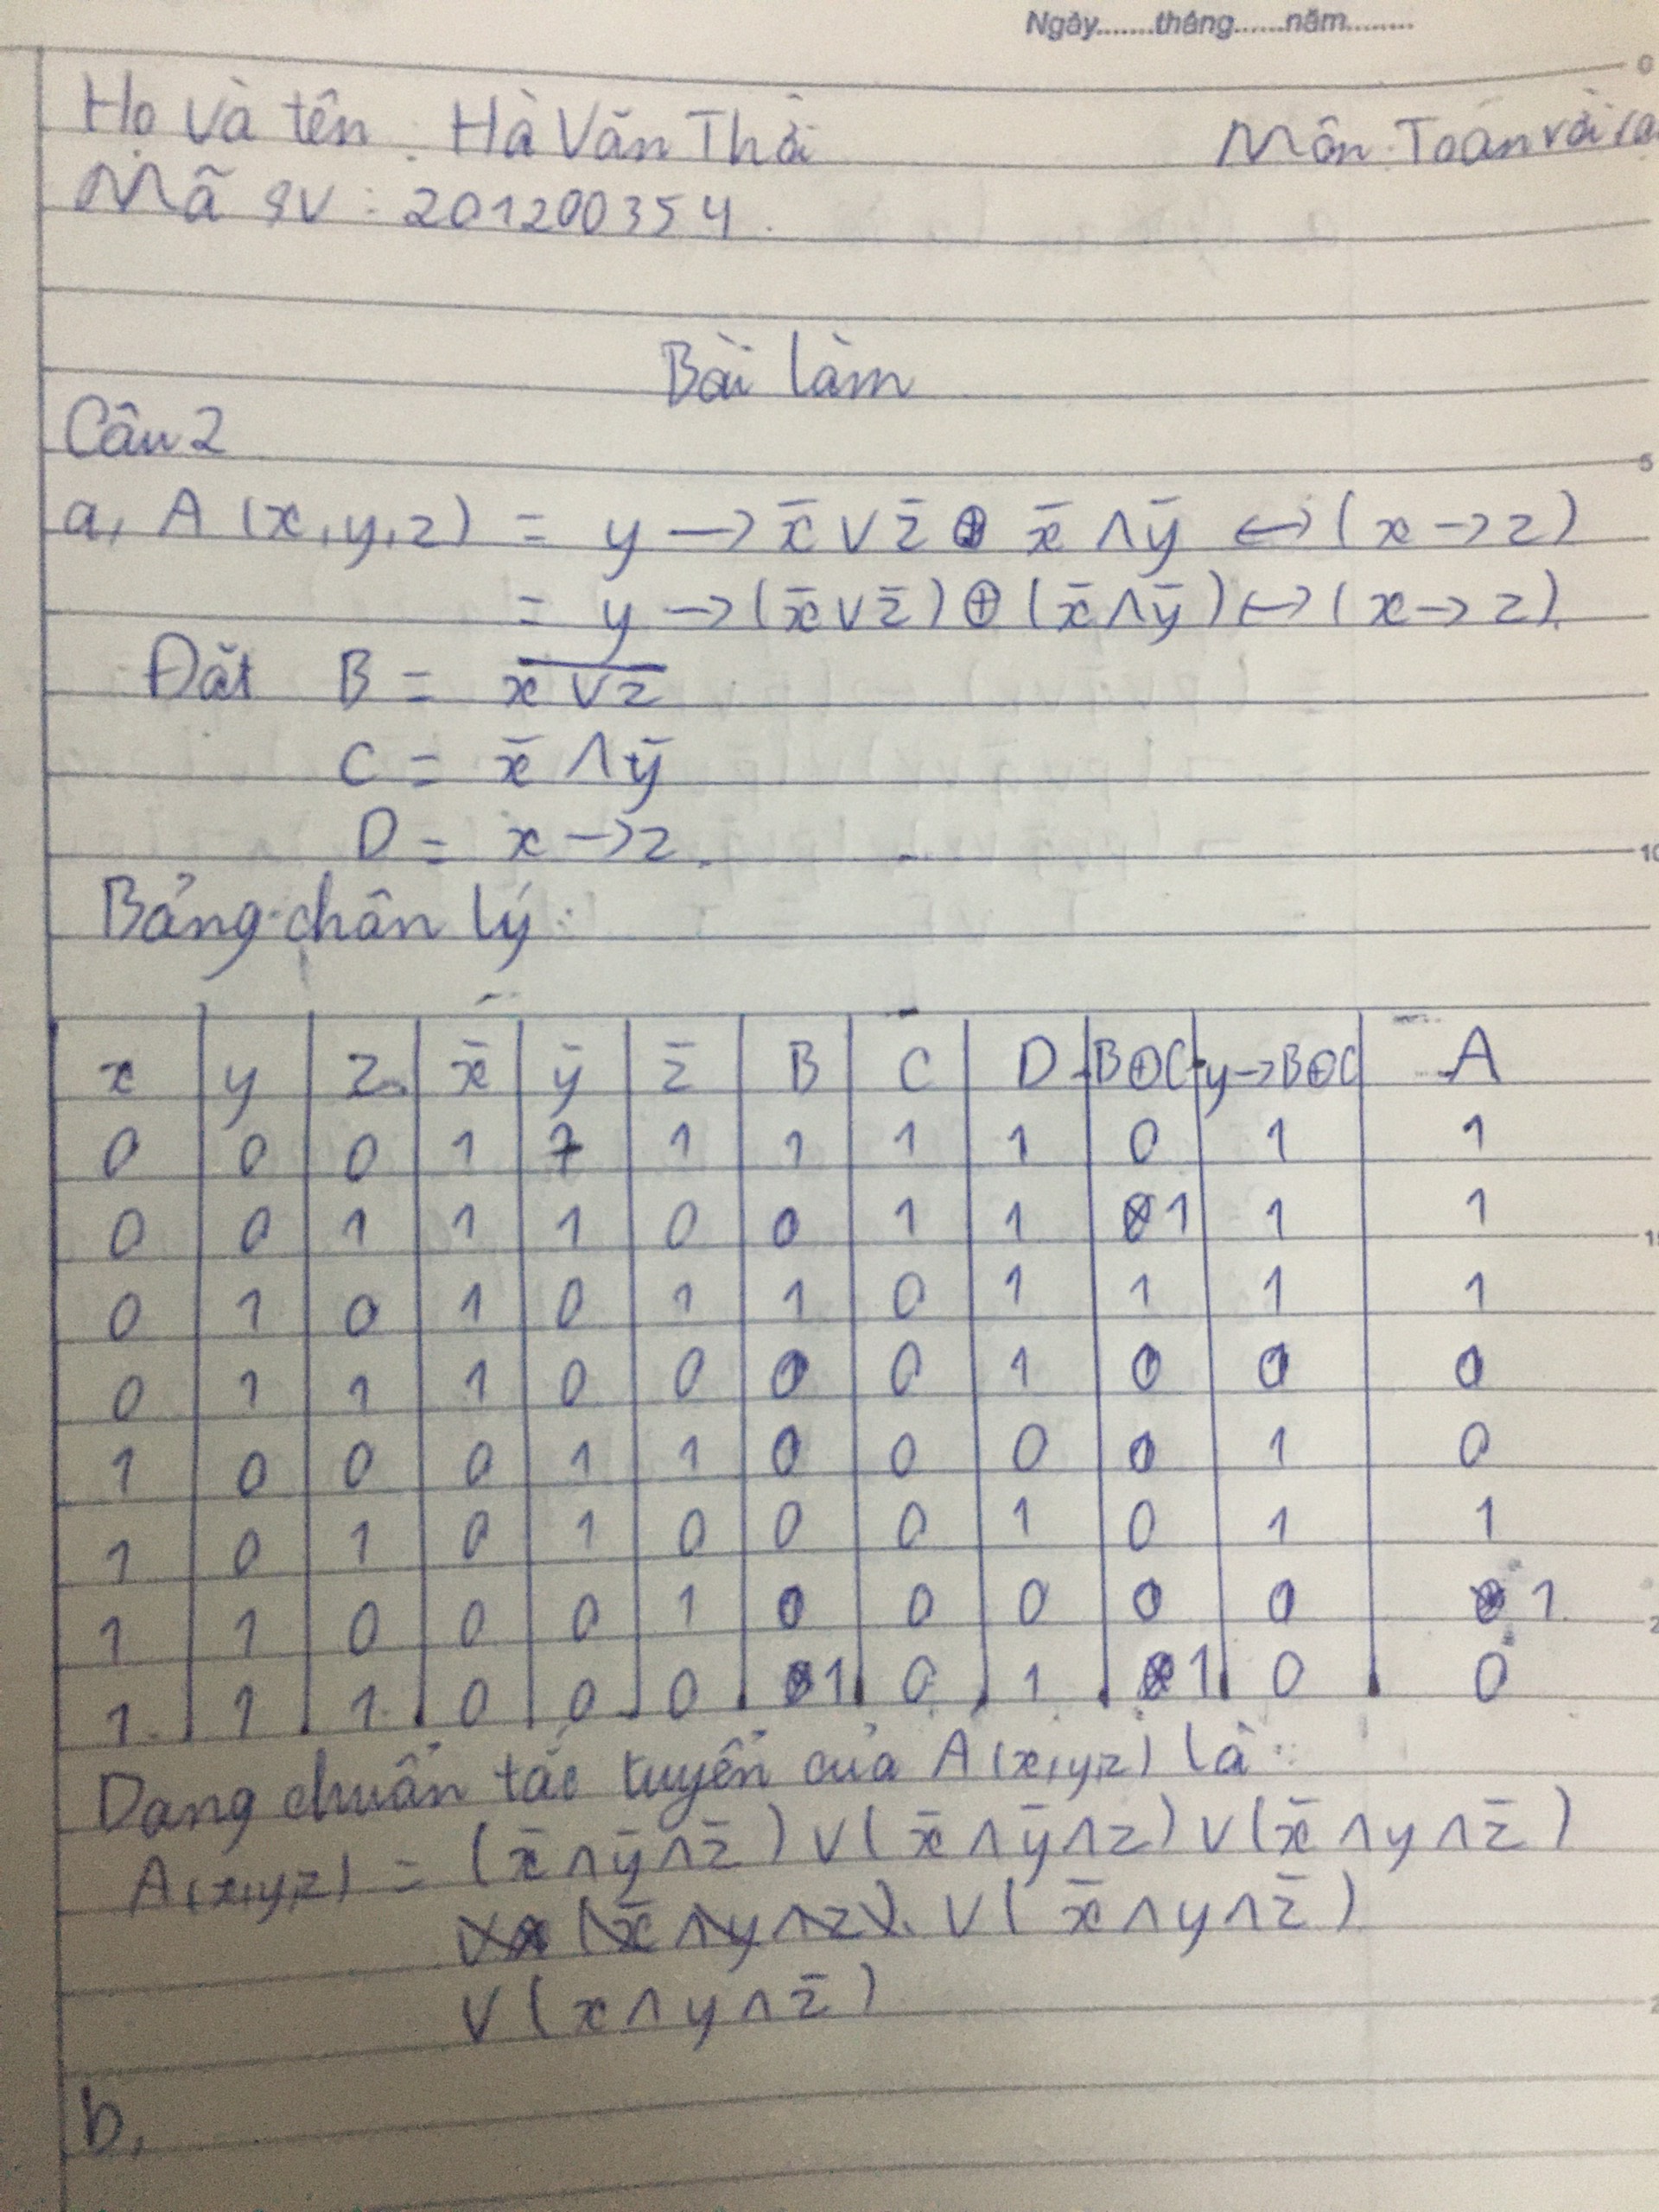 Ngày.......tháng......năm.........
Họ và tên : Hà Văn Thời Môn: Toán rời rạ
Mã SV : 201200354
Bài làm
Câu 2
a, A (x,y,z) = y → x̄ ∨ z̄ ⊕ x̄ ∧ ȳ ↔ (x → z)
= y → (x̄ ∨ z̄) ⊕ (x̄ ∧ ȳ) ↔ (x → z)
Đặt B = \overline{x ∨ z}
C = x̄ ∧ ȳ
D = x → z
Bảng chân lý:
x y z x̄ ȳ z̄ B C D B⊕C y→B⊕C A
0 0 0 1 1 1 1 1 1 0 1 1
0 0 1 1 1 0 0 1 1 1 1 1
0 1 0 1 0 1 1 0 1 1 1 1
0 1 1 1 0 0 0 0 1 0 0 0
1 0 0 0 1 1 0 0 0 0 1 0
1 0 1 0 1 0 0 0 1 0 1 1
1 1 0 0 0 1 0 0 0 0 0 1
1 1 1 0 0 0 1 0 1 1 0 0
Dạng chuẩn tắc tuyển của A(x,y,z) là:
A(x,y,z) = (x̄ ∧ ȳ ∧ z̄) ∨ (x̄ ∧ ȳ ∧ z) ∨ (x̄ ∧ y ∧ z̄)
∨ (x̄ ∧ y ∧ z̄)
∨ (x ∧ y ∧ z̄)
b,
5
10